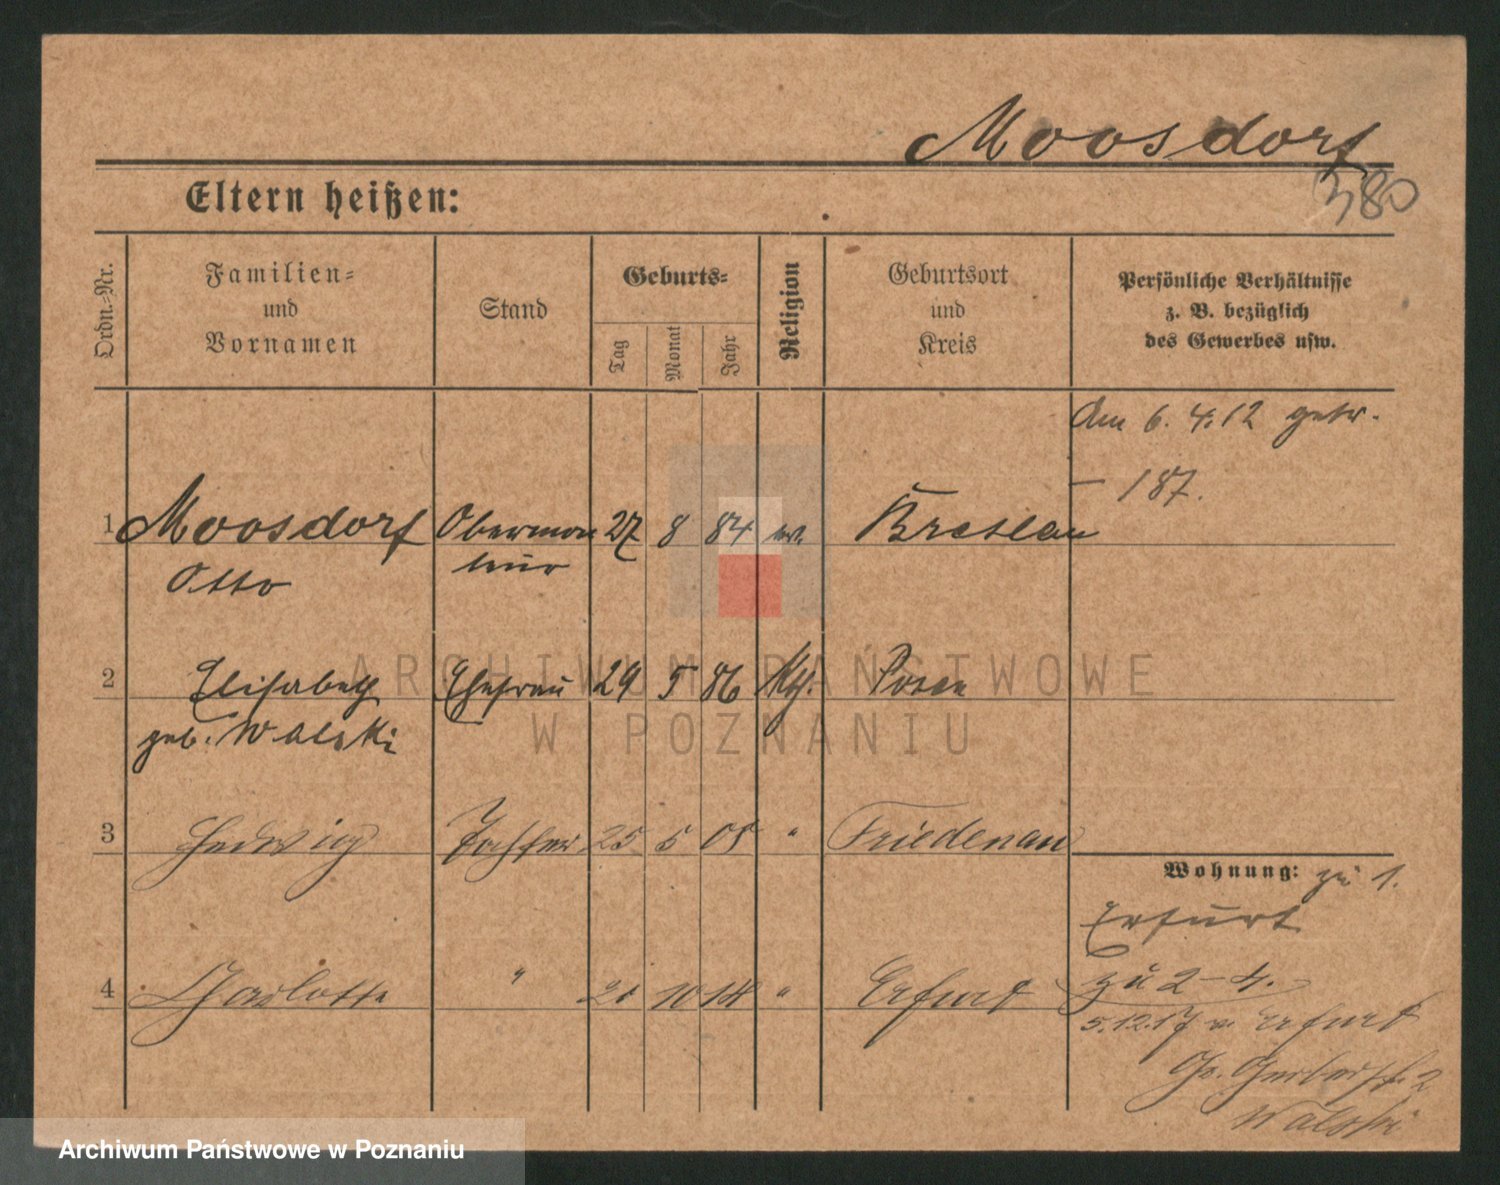 Moosdorf
380
Eltern heißen:
Ordn.-Nr.
Familien-
und
Vornamen
Stand
Geburts-
Tag
Monat
Jahr
Religion
Geburtsort
und
Kreis
Persönliche Verhältnisse
z. B. bezüglich
des Gewerbes usw.
Am 6. 4. 12 getr.
– 187.
1 Moosdorf Obermon 27 8 84 ev. Breslau
Otto teur
2 Elisabeth Ehefrau 29 5 86 kth. Posen
geb. Walski
3 Hedwig Tochter 25 5 05 " Friedenau
Wohnung: zu 1.
Erfurt
4 Charlotte " 21 10 14 " Erfurt
zu 2–4.
5.12.17 v. Erfurt
Gr. Gerberstr. 2
Walski
ARCHIWUM PAŃSTWOWE
W POZNANIU
Archiwum Państwowe w Poznaniu